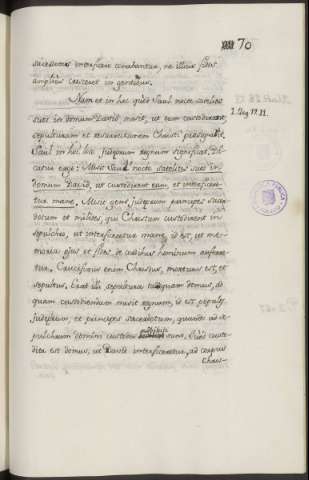 70
sacerdotes interficere conabantur, ne illius fides
amplius cresceret in gentibus.
Nam et in hoc quod Saul nocte satelites
suos in domum David misit, ut eum custodirent,
sepulturam et resurrectionem Christi
Saul in hoc loco Judæorum regnum significat. Di-
catur ergo: Misit Saul nocte satelites suos in
domum David, ut custodirent eum, et interficere-
tur mane. Misit gens judæorum principes sacer-
dotum et milites, qui Christum custodirent in
sepulchro, ut interficeretur mane, id est, ut me-
moria ejus et fides de cordibus hominum auferre-
tur. Crucifixus enim Christus, mortuus est, et
sepultus. Erat illi sepultura tanquam domus, ad
quam custodiendum misit regnum, id est, populus
Judæorum, et principes sacerdotum, quando ad se-
pulchrum domini custodes adhibiti sunt. Quod custo-
dita est domus, ut David interficeretur, ad corpus
Chris-
1. Reg. 19. 11.